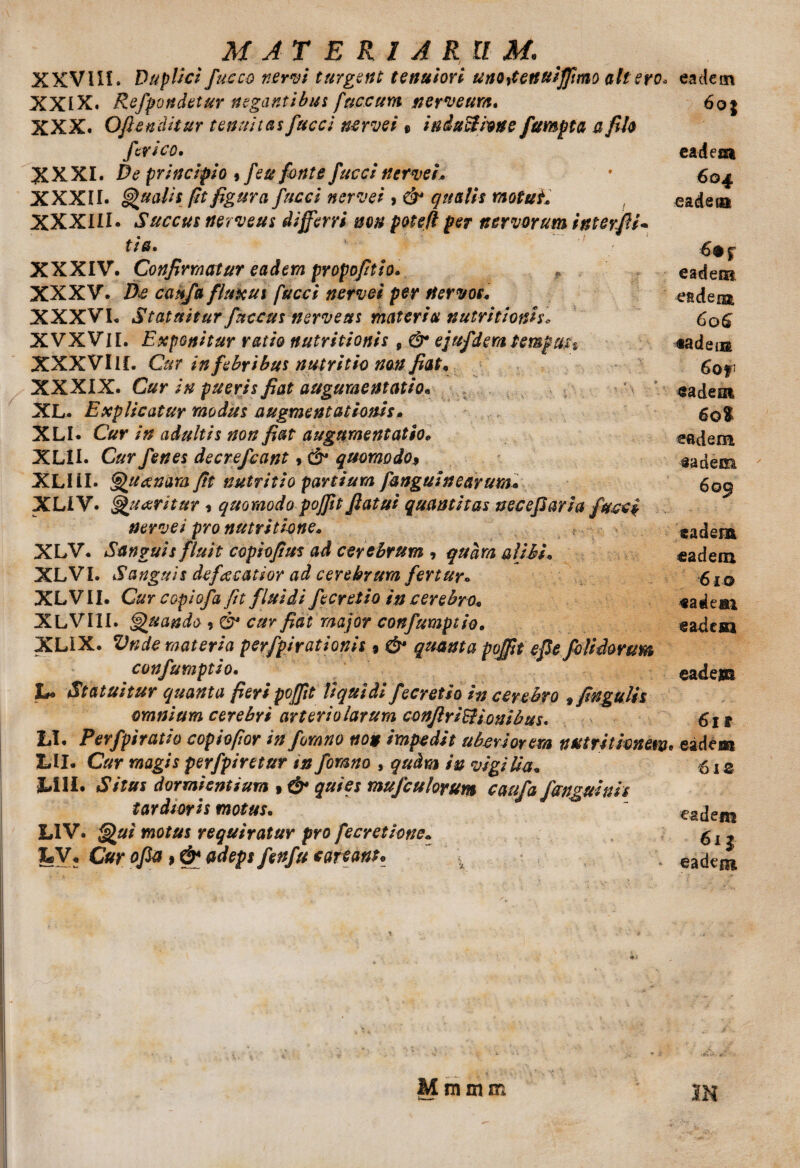 MATERIARUM.
XXVIII. Duplici ſucco nervi turgent tenuiori uno, tenuiſſimo altero. eadem
XXIX. Reſpondetur negantibus ſuccum nerveum. 603
XXX. Oſtenditur tenuitas ſucci nervei, inductione ſumpta a filo
ſerico. eadem
XXXI. De principio, ſeu fonte ſucci nervei. 604
XXXII. Qualis ſit figura ſucci nervei, & qualis motus. eadem
XXXIII. Succus nerveus differri non poteſt per nervorum interſti-
tia. 605
XXXIV. Confirmatur eadem propoſitio. eadem
XXXV. De cauſa fluxus ſucci nervei per nervos. eadem
XXXVI. Statuitur ſuccus nerveus materia nutritionis. 606
XVXVII. Exponitur ratio nutritionis, & ejuſdem tempus. eadem
XXXVIII. Cur in febribus nutritio non fiat. 607
XXXIX. Cur in pueris fiat augumentatio. eadem
XL. Explicatur modus augmentationis. 608
XLI. Cur in adultis non fiat augumentatio. eadem
XLII. Cur ſenes decreſcant, & quomodo. eadem
XLIII. Quænam ſit nutritio partium ſanguinearum. 609
XLIV. Quæritur, quomodo poſſit ſtatui quantitas neceſſaria ſucci
nervei pro nutritione. eadem
XLV. Sanguis fluit copioſius ad cerebrum, quàm alibi. eadem
XLVI. Sanguis defæcatior ad cerebrum fertur. 610
XLVII. Cur copioſa ſit fluidi ſecretio in cerebro. eadem
XLVIII. Quando, & cur fiat major conſumptio. eadem
XLIX. Unde materia perſpirationis, & quanta poſſit eſſe ſolidorum
conſumptio. eadem
L. Statuitur quanta fieri poſſit liquidi ſecretio in cerebro, ſingulis
omnium cerebri arteriolarum conſtrictionibus. 611
LI. Perſpiratio copioſior in ſomno non impedit uberiorem nutritionem. eadem
LII. Cur magis perſpiretur in ſomno, quàm in vigilia. 612
LIII. Situs dormientium, & quies muſculorum cauſa ſanguinis
tardioris motus. eadem
LIV. Qui motus requiratur pro ſecretione. 613
LV. Cur oſſa, & adeps ſenſu careant. eadem
Mmmm IN